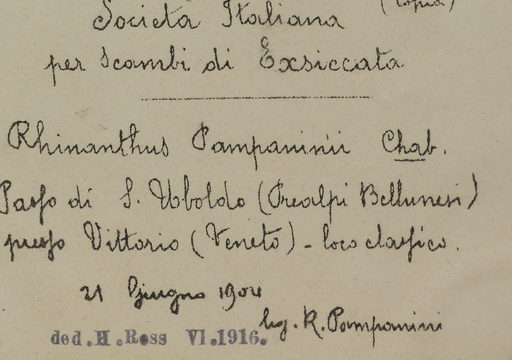 (copia)
Società Italiana
per Scambi di Exsiccata
Rhinanthus Pampaninii Chab.
Passo di S. Uboldo (Prealpi Bellunesi)
presso Vittorio (Veneto) - loco classico.
21 Giugno 1904
leg. R. Pampanini
ded. H. Ross VI.1916.